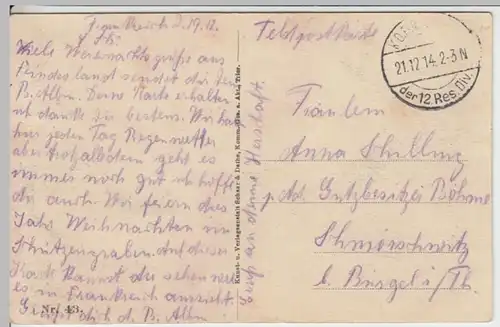 Frankreich d. 19.12.
Viele Weihnachtsgrüße aus
Feindesland sendet dir dein
B. Albin. Deine Karte erhalten
ich danke dir bestens. Wir haben
hier jeden Tag Regenwetter
aber trotzalledem geht es
immer noch gut ich hoffe
du auch. Wir feiern dies
Jahr Weihnachten im
Schützengraben. Auf dieser
Karte kannst du sehen wie
es in Frankreich aussieht.
Es grüßt dich dein B. Albin
Nr. 43.
Kunst- u. Verlagsanstalt Schaar & Dathe, Komm.-Ges. a. Akt., Trier.
Gruß an deine Herschaft
Feldpostkarte
21.12.14. 2-3 N
der 12. Res. Div.
Fräulein
Anna Schilling
Gutzbesitzer Böhme
b. Bürgel i/Th.